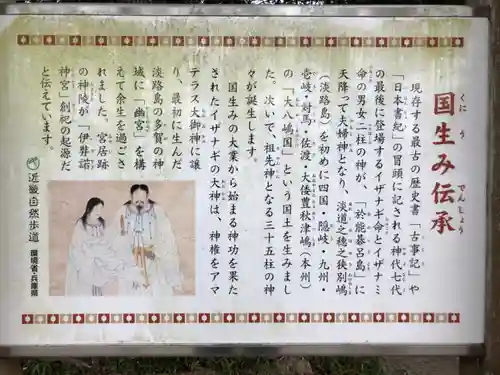 国生み伝承
くにうでんしょう
現存する最古の歴史書「古事記」や
「日本書紀」の冒頭に記される神代七代
の最後に登場するイザナギ命とイザナミ
命の男女二柱の神が、「於能碁呂島」に
天降って夫婦神となり、淡道之穂之狭別嶋
（淡路島）を初めに四国・隠岐・九州・
壱岐・対馬・佐渡・大倭豊秋津嶋（本州）
の「大八嶋国」という国土を生みまし
た。次いで、祖先神となる三十五柱の神
々が誕生します。
国生みの大業から始まる神功を果た
されたイザナギの大神は、神権をアマ
テラス大御神に譲
り、最初に生んだ
淡路島の多賀の神
域に「幽宮」を構
えて余生を過ごさ
れました。宮居跡
の神陵が「伊弉諾
神宮」創祀の起源だ
と伝えています。
近畿自然歩道
環境省・兵庫県